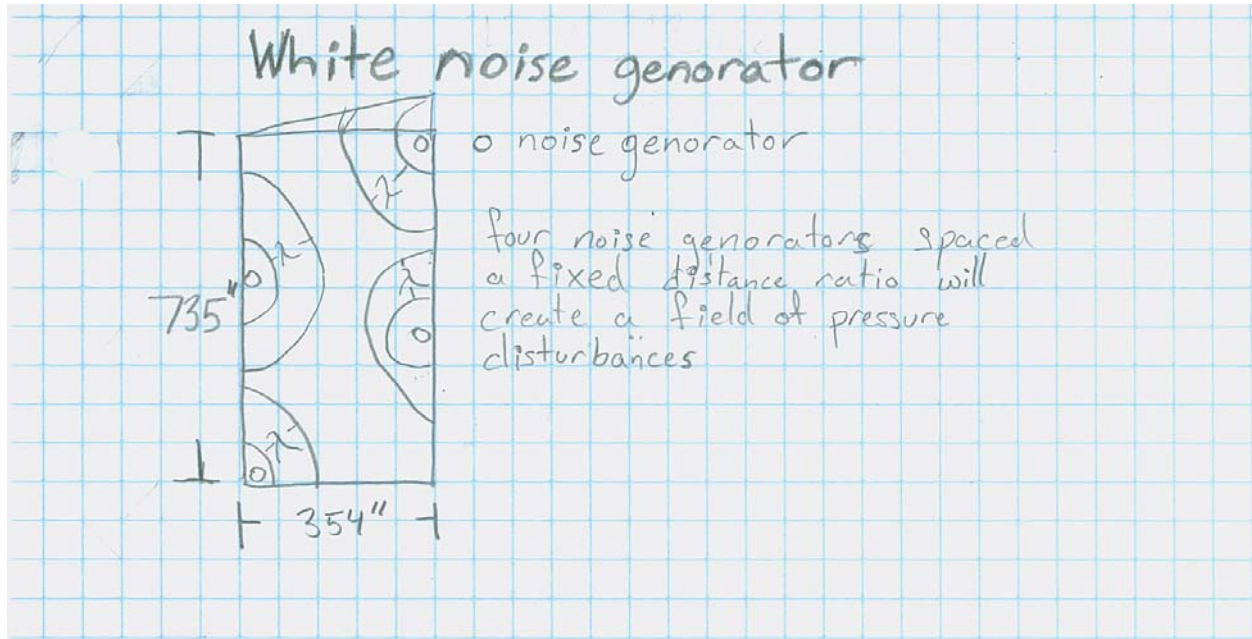 White noise genorator
o noise genorator
λ
four noise genorators spaced
a fixed distance ratio will
create a field of pressure
disturbances
λ
λ
735"
λ
354"